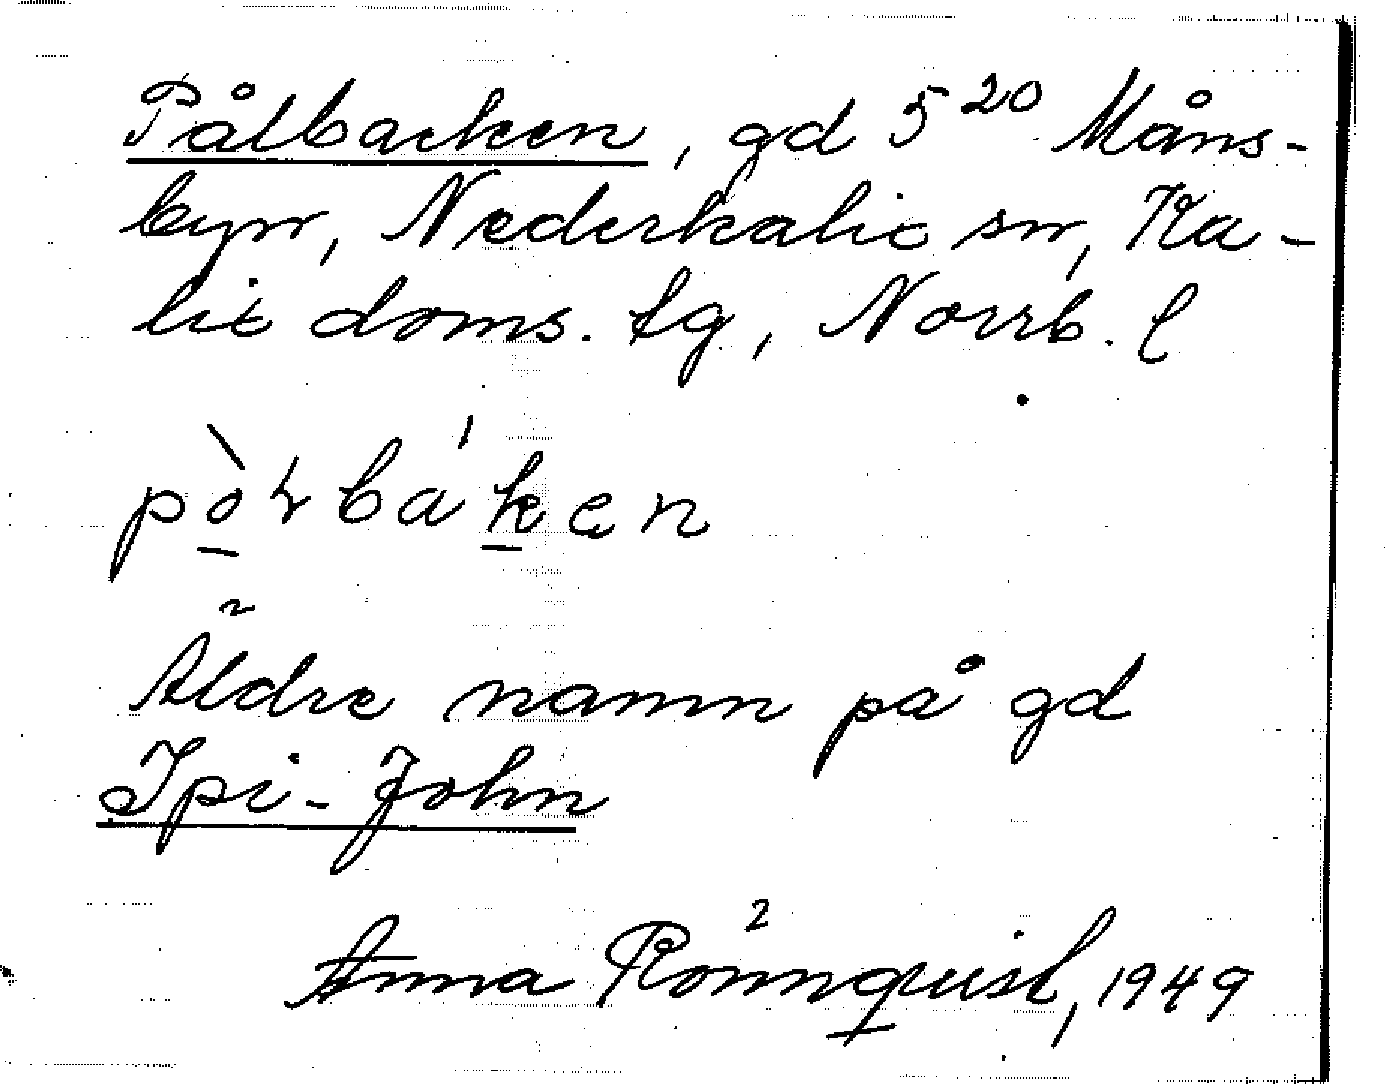 Pålbacken, gd 5²⁰ Måns-
byn, Nederkalix sn, Ka-
lix doms. tg, Norrb. l
pò̱ɽbá̱ken
Äldre namn på gd
Ipi-John
Anna Rönnquist, 1949